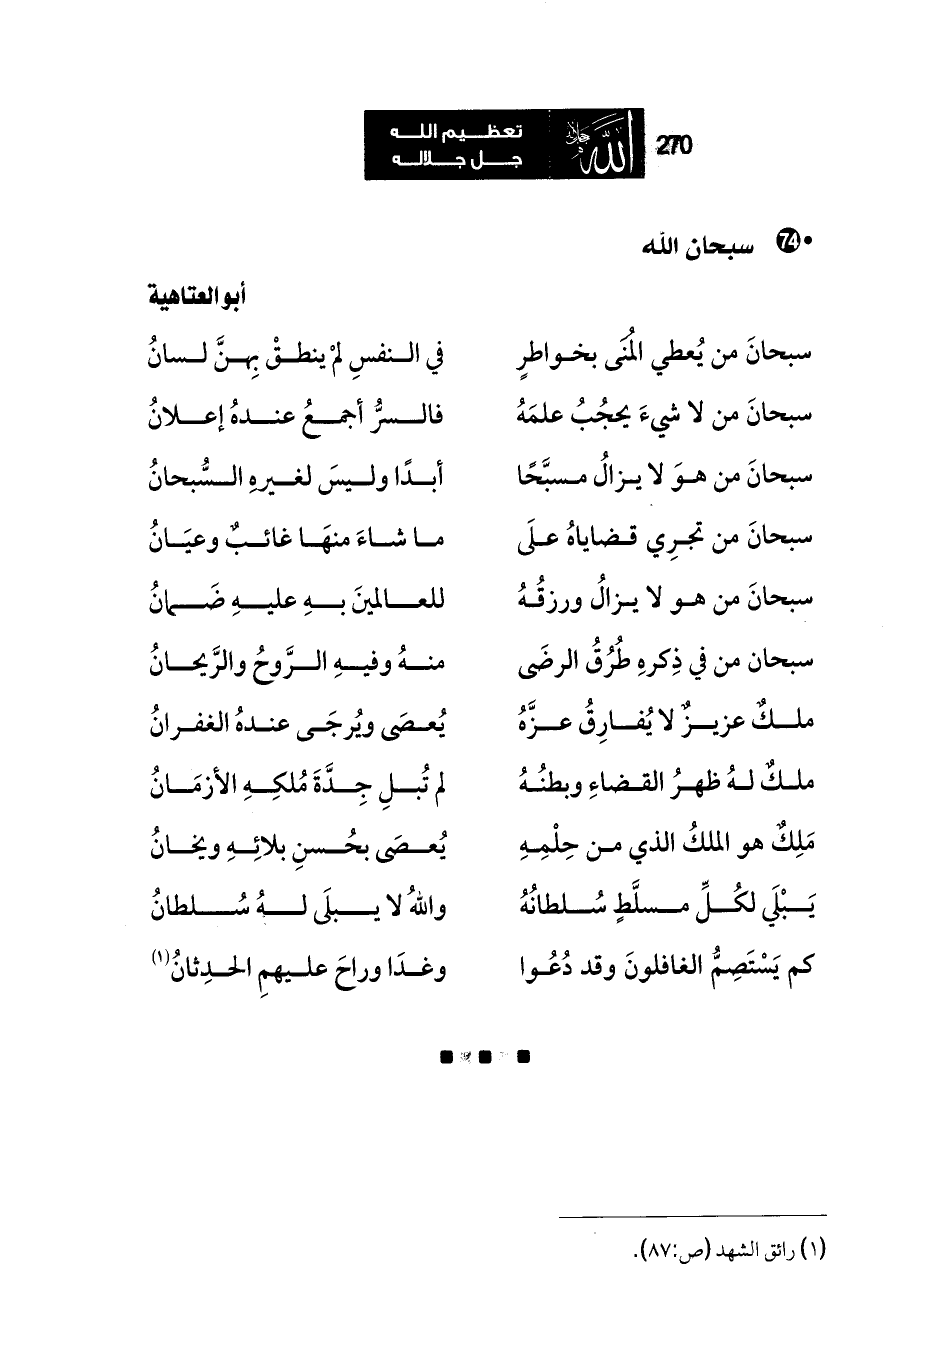 270
تعظيم الله
جل جلاله
الله جل جلاله
• 74 سبحان الله
أبو العتاهية
سبحانَ من يُعطي المُنَى بخواطرٍ في النفسِ لمْ ينطقْ بِهنَّ لسانُ
سبحانَ من لا شيءَ يحجُبُ علمَهُ فالسرُّ أجمعُ عندهُ إعلانُ
سبحانَ من هوَ لا يزالُ مسبَّحًا أبدًا وليسَ لغيرهِ السُّبحانُ
سبحانَ من تجرِي قضاياهُ علَى ما شاءَ منهَا غائبٌ وعيَانُ
سبحانَ من هو لا يزالُ ورزقُهُ للعالمينَ بهِ عليهِ ضَمانُ
سبحان من في ذِكرهِ طُرُقُ الرضَى منهُ وفيهِ الرَّوحُ والرَّيحانُ
ملكٌ عزيزٌ لا يُفارِقُ عزَّهُ يُعصَى ويُرجَى عندهُ الغفرانُ
ملكٌ لهُ ظهرُ القضاءِ وبطنُهُ لم تُبلِ جِدَّةَ مُلكِهِ الأزمَانُ
مَلِكٌ هو الملكُ الذي من حِلْمِهِ يُعصَى بحُسنِ بلائِهِ ويخانُ
يَبْلَى لكُلِّ مسلَّطٍ سُلطانُهُ واللهُ لا يبلَى لهُ سُلطانُ
كم يَسْتَصِمُّ الغافلونَ وقد دُعُوا وغدَا وراحَ عليهمِ الحدِثانُ(١)
(١) رائق الشهد (ص:٨٧).